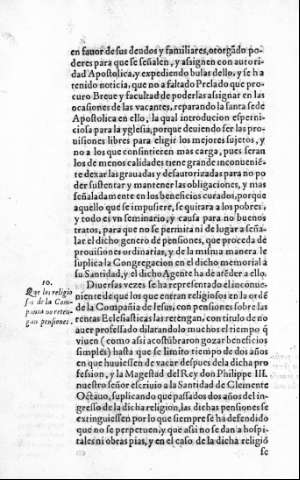 en fauor de sus deudos y familiares, otorgãdo po-
deres para que se señalen, y asignen con autori-
dad Apostolica, y expediendo bulas dello, y se ha
tenido noticia, que no a faltado Prelado que pro-
curo Breue y facultad de poderlas asignar en las
ocasiones de las vacantes, reparando la santa sede
Apostolica en ello, la qual introducion es perni-
ciosa para la yglesia, porque deuiendo ser las pro-
uisiones libres para eligir los mejores sujetos, y
no a los que consintieren mas carga, pues seran
los de menos calidades tiene grande inconuenië-
te dexar las grauadas y desautorizadas para no po
der sustentar y mantener las obligaciones, y mas
señaladamente en los beneficios curados, porque
aquello que se impusiere, se quitara a los pobres,
y todo es vn seminario, y causa para no buenos
tratos, para que no se permita ni de lugar a seña-
lar el dicho genero de pensiones, que proceda de
prouisiones ordinarias, y de la misma manera le
suplica la Congregacion en el dicho memorial a
su Santidad, y el dicho Agente ha de atẽder a ello.
10.
Que los religio
sos de la Com-
pañia no reten-
gan pensiones.
Diuersas vezes se ha representado el inconue-
niente de que los que entran religiosos en la ordẽ
de la Compañia de Iesus, con pensiones sobre las
rentas Eclesiasticas las retengan, con titulo de no
auer professado dilatandolo muchos el tiempo q̃
viuen (como asi acostũbraron gozar beneficios
simples) hasta que se limito tiempo de dos años
en que huuiessen de vacar despues dela dicha pro
fession, y la Magestad del Rey don Philippe III.
nuestro señor escriuio a la Santidad de Clemente
Octauo, suplicando que passados dos años del in-
gresso de la dicha religion, las dichas pensiones se
extinguiessen por lo que siempre se ha defendido
que no se perpetuen, y que asi no se dan a hospi-
tales ni obras pias, y en el caso de la dicha religiõ
se